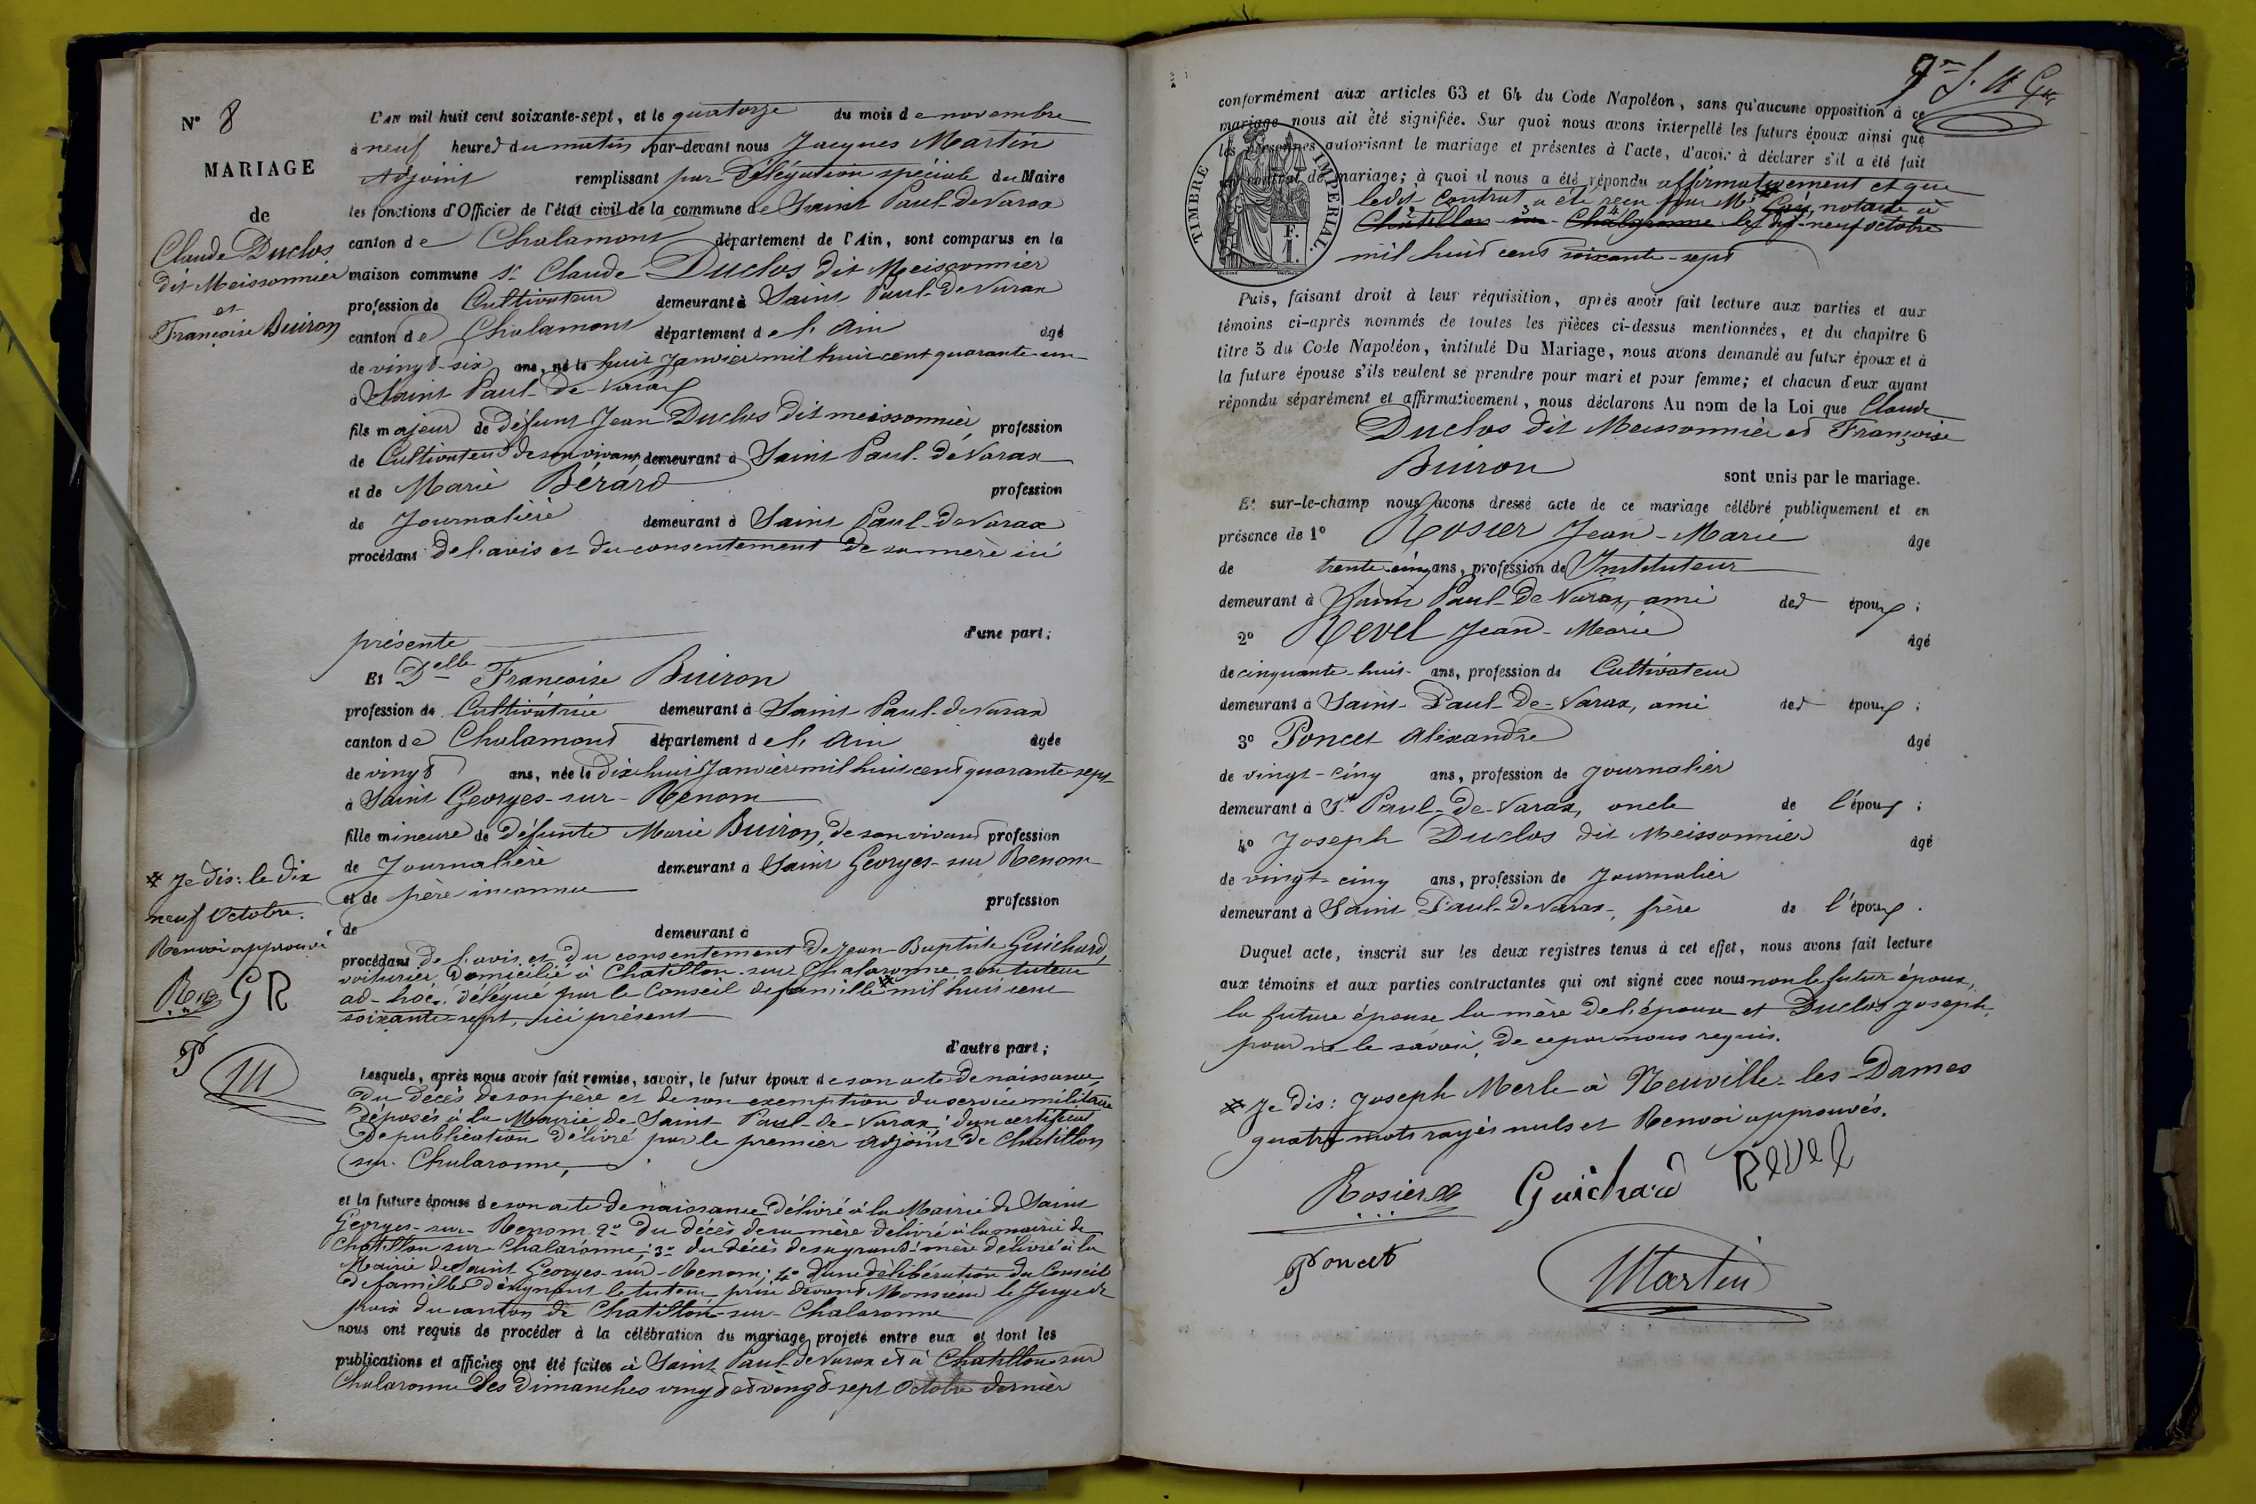 N° 8
MARIAGE
de
Claude Duclos
dit Meissonnier
et
Françoise Buiron
L'an mil huit cent soixante-sept, et le quatorze du mois de novembre
à neuf heures du matin par-devant nous Jacques Martin
Adjoint remplissant par Délégation spéciale du Maire
les fonctions d'Officier de l'état civil de la commune de Saint Paul-de Varax
canton de Chalamont département de l'Ain, sont comparus en la
maison commune Sr Claude Duclos dit Meissonnier
profession de Cultivateur demeurant à Saint Paul-de Varax
canton de Chalamont département de l'Ain âgé
de vingt-six ans, né le huit Janvier mil huit cent quarante-un
à Saint Paul-de-Varax
fils majeur de Défunt Jean Duclos dit meissonnier, profession
de Cultivateur de son vivant demeurant à Saint Paul-de Varax
et de Marie Bérard profession
de Journalière demeurant à Saint Paul-de Varax
procédant de l'avis et du consentement de sa mère ici
présente d'une part;
Et Delle Françoise Buiron
profession de Cultivatrice demeurant à Saint-Paul-de Varax
canton de Chalamont département de l'Ain âgée
de vingt ans, née le dix huit Janvier mil huit cent quarante-sept
à Saint Georges-sur-Renom
fille mineure de Défunte Marie Buiron, de son vivant profession
de Journalière demeurant à Saint Georges-sur Renom
et de père inconnu profession
de demeurant à
procédant de l'avis et du consentement de Jean-Baptiste Guichard,
voiturier, domicilié à Chatillon-sur Chalaronne son tuteur
ad-hoc, délégué par le Conseil de famille # mil huit cent
soixante-sept, ici présent
d'autre part;
# Je dis: le dix
neuf Octobre.
Renvoi approuvé
GR
P
M
Lesquels, après nous avoir fait remise, savoir, le futur époux de son acte de naissance,
du décès de son père et de son exemption du service militaire
déposés à la Mairie de Saint Paul-de-Varax; d'un certificat
de publication délivré par le premier adjoint de Chatillon
sur-Chalaronne,
et la future épouse de son acte de naissance délivré à la Mairie de Saint
Georges-sur-Renom 2° du décès de sa mère délivré à la mairie de
Chatillon sur-Chalaronne; 3° du décès de sa grand'mère délivré à la
Mairie de Saint Georges-sur-Renom; 4° d'une délibération du Conseil
de famille désignant le tuteur prise devant Monsieur le Juge de
paix du canton de Chatillon-sur-Chalaronne
nous ont requis de procéder à la célébration du mariage projeté entre eux et dont les
publications et affiches ont été faites à Saint Paul-de Varax et à Chatillon sur
Chalaronne les Dimanches vingt et vingt-sept Octobre dernier
conformément aux articles 63 et 64 du Code Napoléon, sans qu'aucune opposition à ce
mariage nous ait été signifiée. Sur quoi nous avons interpellé les futurs époux ainsi que
les personnes autorisant le mariage et présentes à l'acte, d'avoir à déclarer s'il a été fait
un contrat de mariage; à quoi il nous a été répondu affirmativement et que
ledit Contrat a été reçu par Me notaire à
Châtillon sur Chalaronne le dix-neuf octobre
mil huit cent soixante-sept
TIMBRE IMPERIAL.
F.
1.
Puis, faisant droit à leur réquisition, après avoir fait lecture aux parties et aux
témoins ci-après nommés de toutes les pièces ci-dessus mentionnées, et du chapitre 6
titre 5 du Code Napoléon, intitulé Du Mariage, nous avons demandé au futur époux et à
la future épouse s'ils veulent se prendre pour mari et pour femme; et chacun d'eux ayant
répondu séparément et affirmativement, nous déclarons Au nom de la Loi que Claude
Duclos dit Meissonnier et Françoise
Buiron sont unis par le mariage.
Et sur-le-champ nous avons dressé acte de ce mariage célébré publiquement et en
présence de 1° Rosier Jean-Marie âgé
de trente-cinq ans, profession de Instituteur
demeurant à Saint Paul-de Varax, ami des époux;
2° Revel Jean-Marie âgé
de cinquante-huit ans, profession de Cultivateur
demeurant à Saint-Paul-de-Varax, ami des époux;
3° Poncet Alexandre âgé
de vingt-cinq ans, profession de Journalier
demeurant à St Paul-de-Varax, oncle de l'époux;
4° Joseph Duclos dit Meissonnier âgé
de vingt-cinq ans, profession de Journalier
demeurant à Saint Paul-de Varax, frère de l'époux.
Duquel acte, inscrit sur les deux registres tenus à cet effet, nous avons fait lecture
aux témoins et aux parties contractantes qui ont signé avec nous non le futur époux,
la future épouse la mère de l'époux et Duclos Joseph,
pour ne le savoir, de ce par nous requis.
# Je dis: Joseph Merle à Neuville-les Dames
quatre mots rayés nuls et Renvoi approuvés.
Rosier Guichard Revel
Poncet Martin